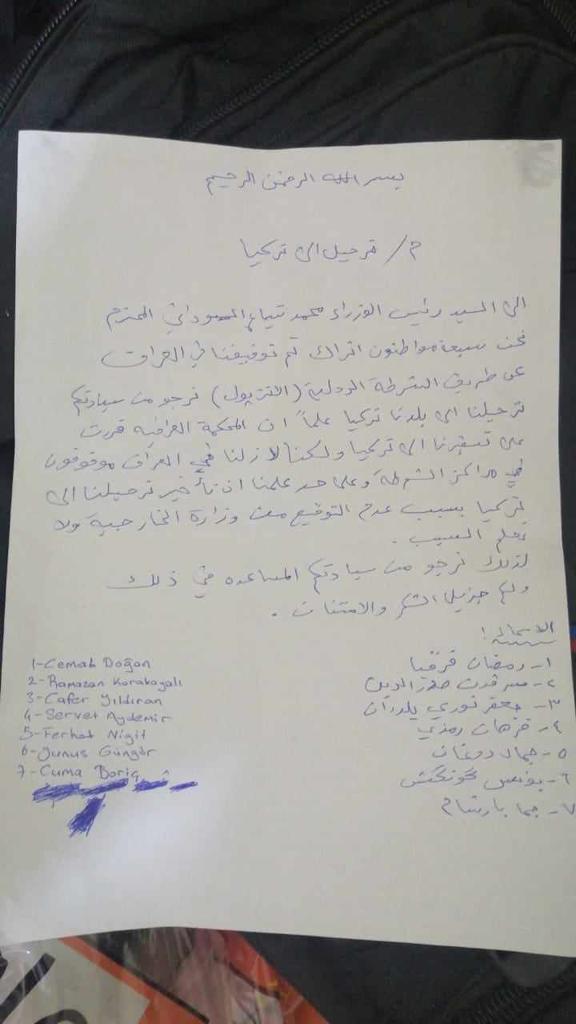 بسم الله الرحمن الرحيم
م/ ترحيل الى تركيا
الى السيد رئيس الوزراء محمد شياع السوداني المحترم
نحن سبعة مواطنون اتراك تم توقيفنا في العراق
عن طريق الشرطة الدولية (الانتربول) نرجو من سيادتكم
ترحيلنا الى بلدنا تركيا علماً ان المحكمة العراقية قررت
على تسفيرنا الى تركيا ولكننا لازلنا في العراق موقوفون
في مراكز الشرطة وعلى حد علمنا ان تأخير ترحيلنا الى
تركيا بسبب عدم التوقيع من وزارة الخارجية ولا
نعلم السبب.
لذلك نرجو من سيادتكم المساعده في ذلك
ولكم جزيل الشكر والامتنان.
الاسماء:
١- رمضان قرقيا
٢-
٣- جعفر نوري يلدران
٤- فرهان رمزي
٥- جمال دوغان
٦- يونس
٧- جما
1-Cemal Doğan
2-Ramazan Karakayalı
3-Cafer Yıldıran
4-Servet Aydemir
5-Ferhat Nigit
6-Yunus Güngör
7-Cuma Bariş